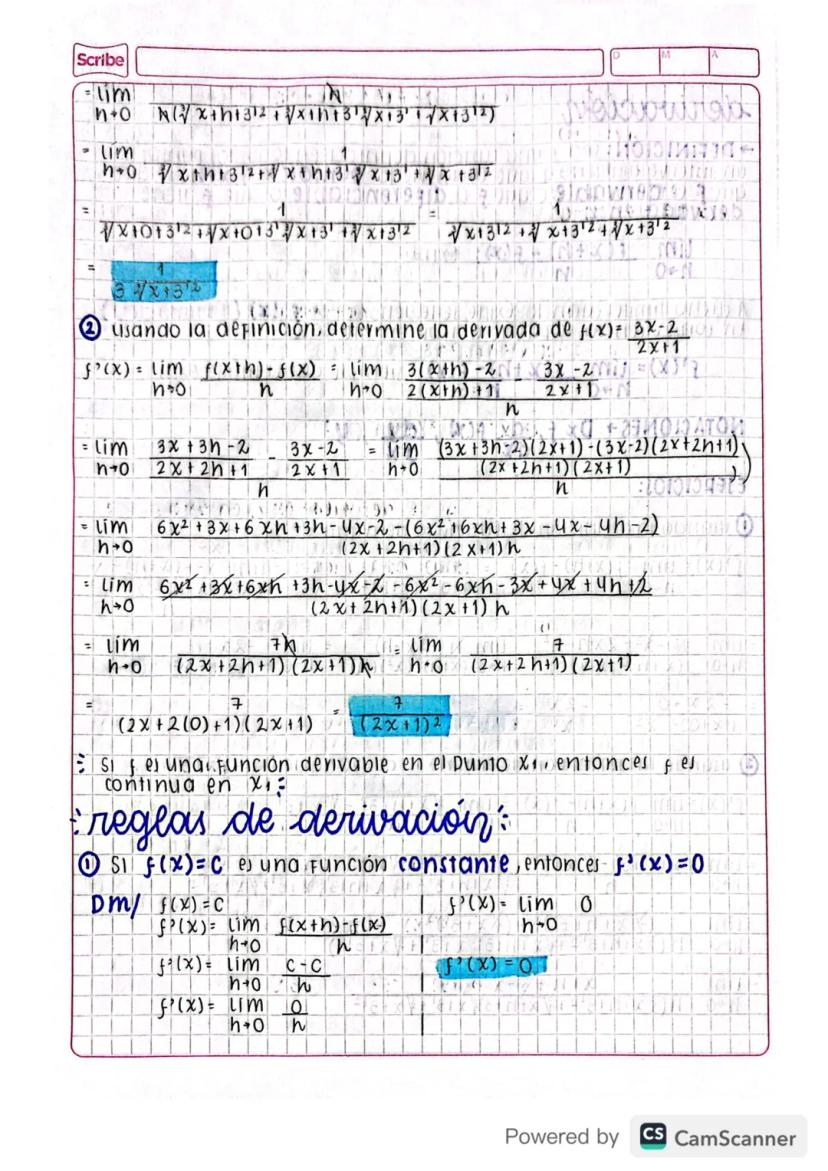 Scribe
D M A
= lím h→0 h / h(∛(x+h+3)² + ∛x+h+3 ∛x+3 + ∛(x+3)²)
= lím h→0 1 / ∛(x+h+3)² + ∛x+h+3 ∛x+3 + ∛(x+3)²
= 1 / ∛(x+0+3)² + ∛x+0+3 ∛x+3 + ∛(x+3)² = 1 / ∛(x+3)² + ∛(x+3)² + ∛(x+3)²
= 1 / 3 ∛(x+3)²
② usando la definición, determine la derivada de f(x)= 3x-2 / 2x+1
f'(x) = lím h→0 f(x+h)-f(x) / h = lím h→0 (3(x+h)-2 / 2(x+h)+1 - 3x-2 / 2x+1) / h
= lím h→0 (3x+3h-2 / 2x+2h+1 - 3x-2 / 2x+1) / h = lím h→0 ((3x+3h-2)(2x+1)-(3x-2)(2x+2h+1) / (2x+2h+1)(2x+1)) / h
= lím h→0 6x²+3x+6xh+3h-4x-2-(6x²+6xh+3x-4x-4h-2) / (2x+2h+1)(2x+1)h
= lím h→0 6x²+3x+6xh+3h-4x-2-6x²-6xh-3x+4x+4h+2 / (2x+2h+1)(2x+1)h
= lím h→0 7h / (2x+2h+1)(2x+1)h = lím h→0 7 / (2x+2h+1)(2x+1)
= 7 / (2x+2(0)+1)(2x+1) = 7 / (2x+1)²
Si f es una función derivable en el punto x₁, entonces f es
continua en x₁
reglas de derivación
① Si f(x)=C es una función constante, entonces f'(x)=0
Dm/ f(x)=C
f'(x)= lím h→0 f(x+h)-f(x) / h
f'(x)= lím h→0 C-C / h
f'(x)= lím h→0 0 / h
f'(x)= lím h→0 0
f'(x)=0
Powered by CS CamScanner